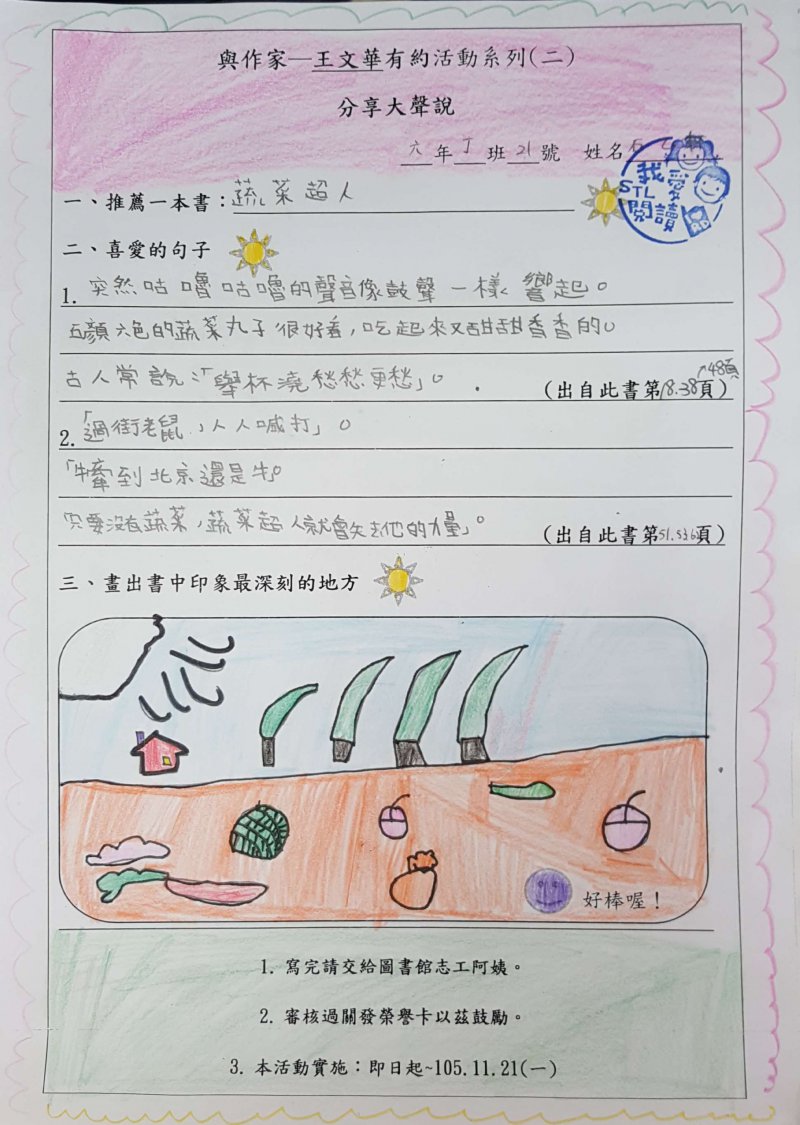 與作家—王文華有約活動系列(二)
分享大聲說
六年丁班21號 姓名
我愛
STL
閱讀
一、推薦一本書：蔬菜超人
二、喜愛的句子
1. 突然咕嚕咕嚕的聲音像鼓聲一樣響起。
五顏六色的蔬菜丸子很好看，吃起來又甜甜香香的。
古人常說：「舉杯澆愁愁更愁」。 (出自此書第18.38頁) 48頁
2. 「過街老鼠，人人喊打」。
「牛牽到北京還是牛」。
只要沒有蔬菜，蔬菜超人就會失去他的力量」。 (出自此書第51.53頁)
三、畫出書中印象最深刻的地方
好棒喔！
1. 寫完請交給圖書館志工阿姨。
2. 審核過關發榮譽卡以茲鼓勵。
3. 本活動實施：即日起~105.11.21(一)